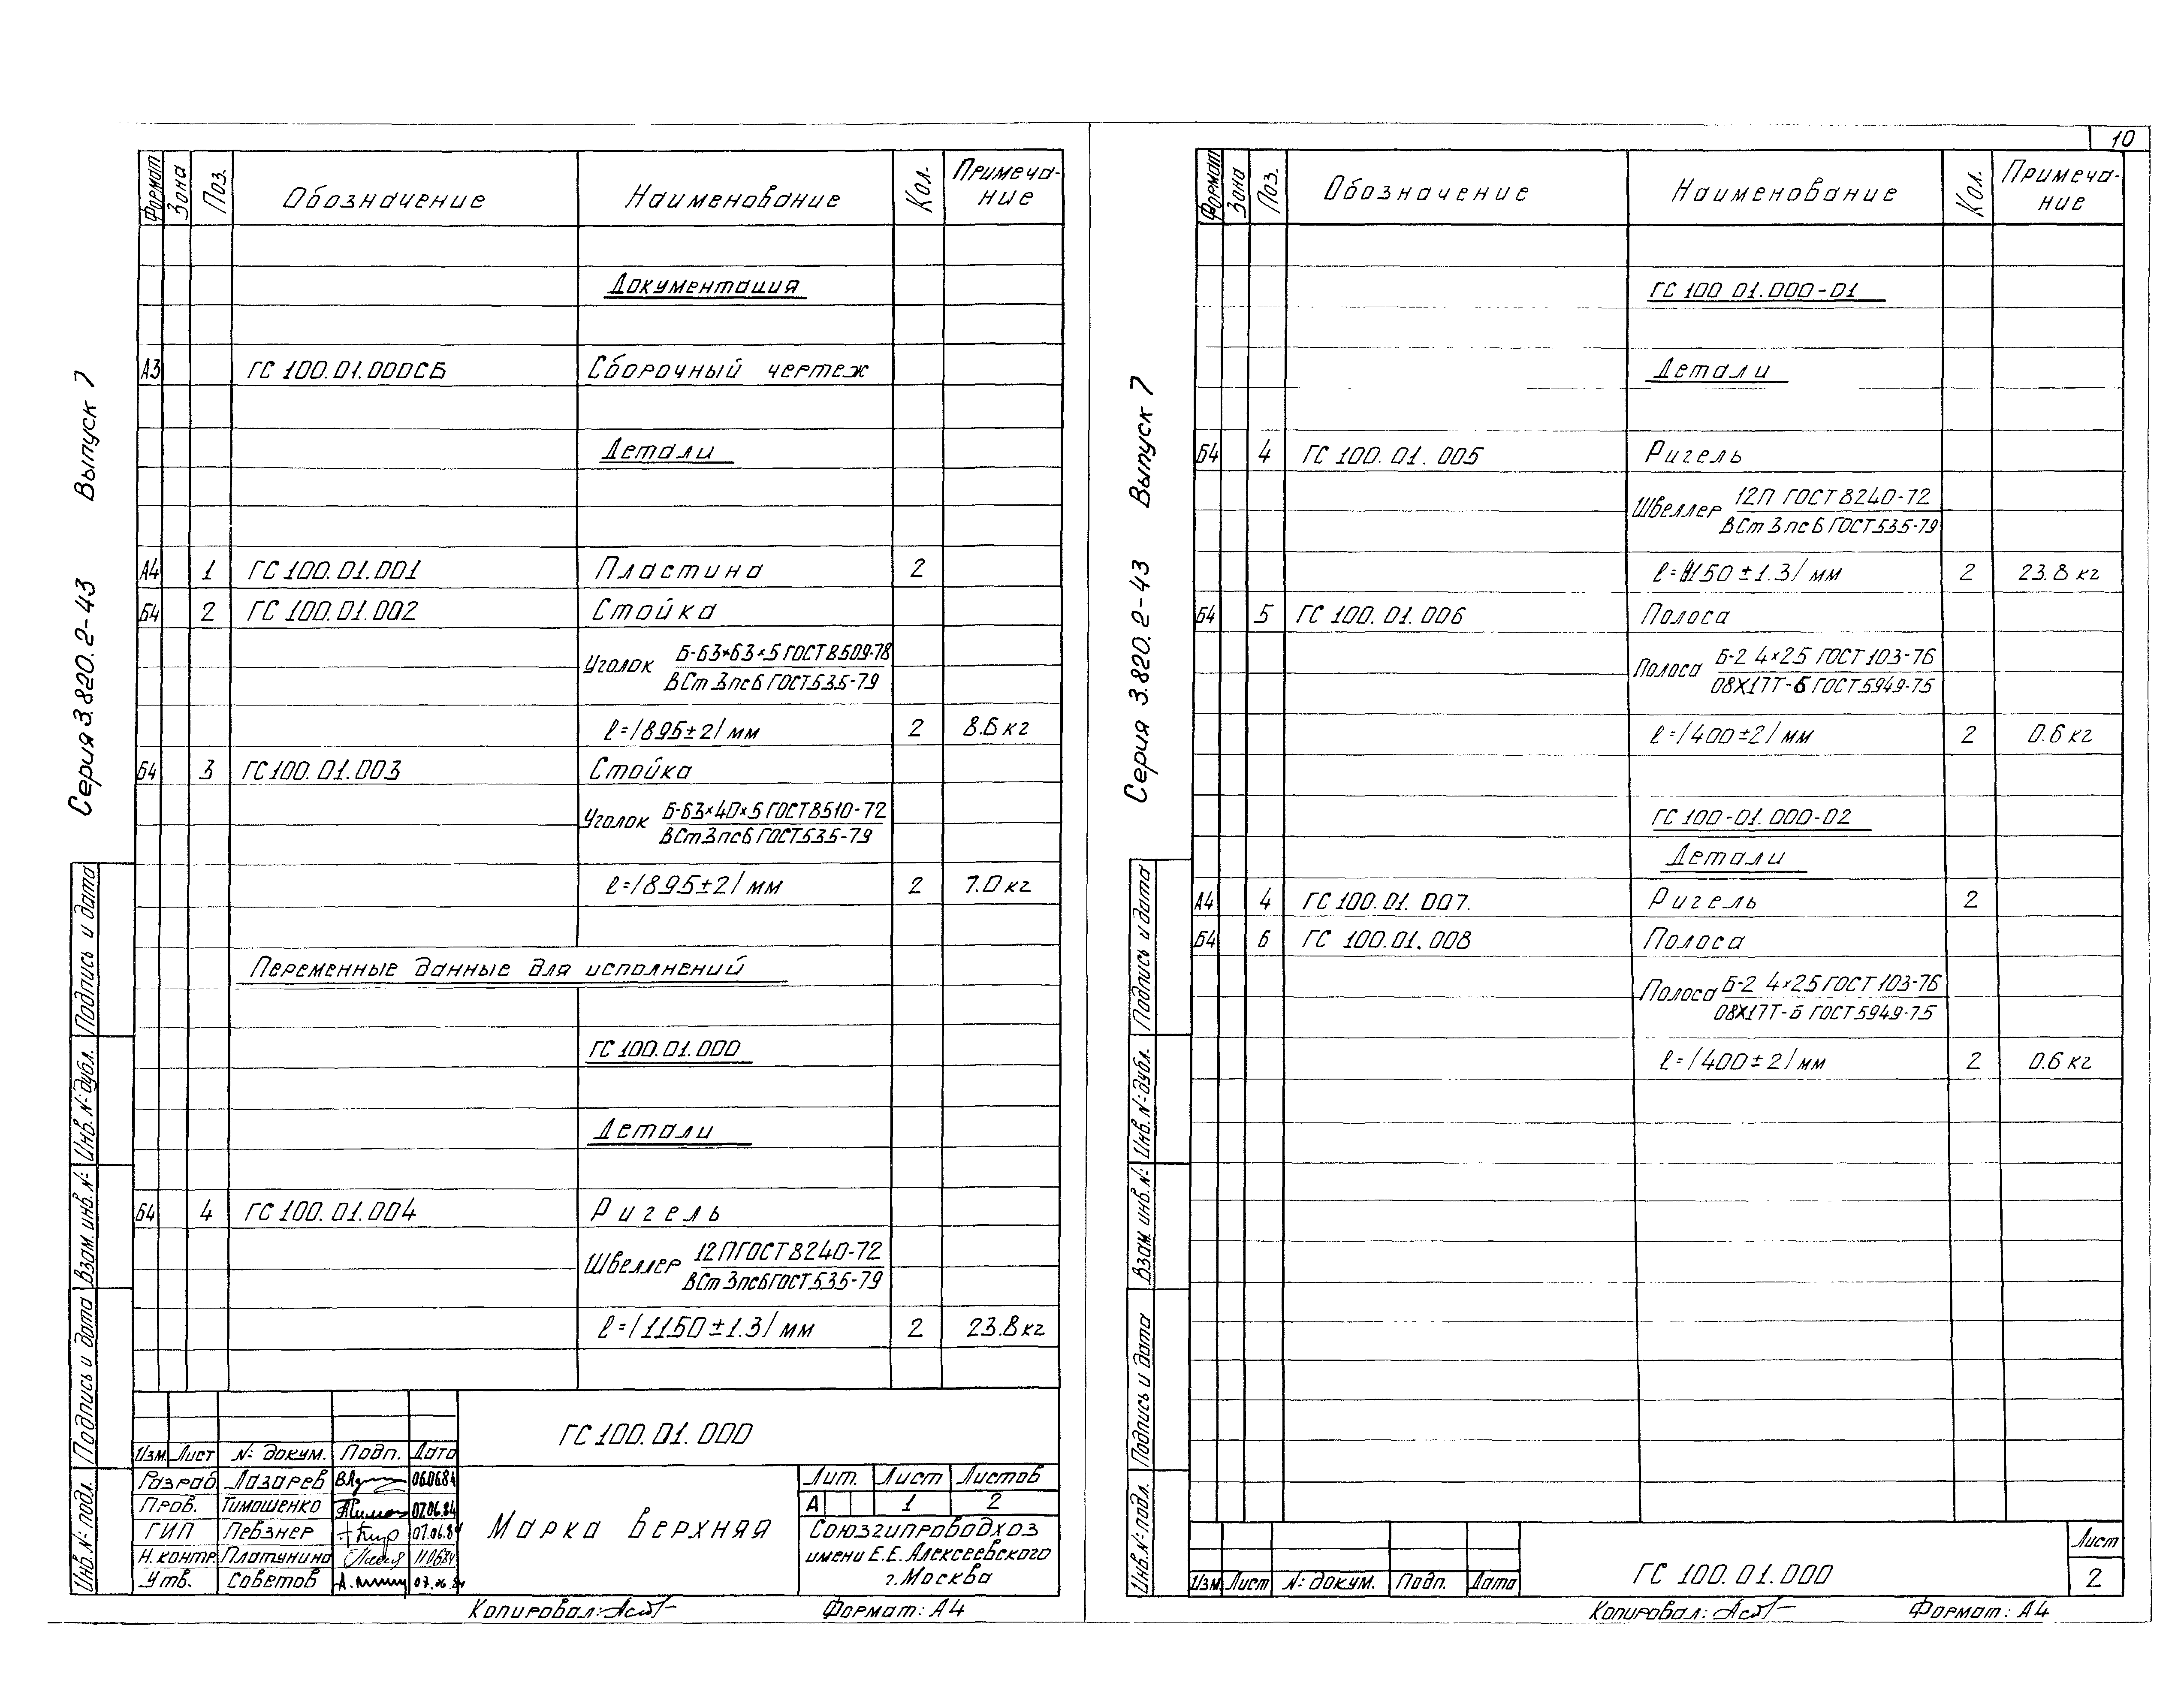 10
Серия 3.820.2-43 Выпуск 7
Формат Зона Поз. Обозначение Наименование Кол. Примеча-
ние
Документация
А3 ГС 100.01.000СБ Сборочный чертеж
Детали
А4 1 ГС 100.01.001 Пластина 2
Б4 2 ГС 100.01.002 Стойка
Уголок Б-63×63×5 ГОСТ 8509-78
ВСт 3 пс 6 ГОСТ 535-79
ℓ=/895±2/ мм 2 8.6 кг
Б4 3 ГС 100.01.003 Стойка
Уголок Б-63×40×5 ГОСТ 8510-72
ВСт 3 пс 6 ГОСТ 535-79
ℓ=/895±2/ мм 2 7.0 кг
Переменные данные для исполнений
ГС 100.01.000
Детали
Б4 4 ГС 100.01.004 Ригель
Швеллер 12П ГОСТ 8240-72
ВСт 3 пс 6 ГОСТ 535-79
ℓ=/1150±1.3/ мм 2 23.8 кг
Подпись и дата
Инв. № дубл.
Взам. инв. №
Подпись и дата
Инв. № подл.
ГС 100.01.000
Изм. Лист № докум. Подп. Дата
Разраб. Лазарев 06.06.84
Пров. Тимошенко 07.06.84
ГИП Певзнер 07.06.84
Н. контр. Платунина 11.06.84
Утв. Советов 07.06.84
Марка верхняя
Лит. Лист Листов
А 1 2
Союзгипроводхоз
имени Е.Е. Алексеевского
г. Москва
Копировал: Формат: А4
Серия 3.820.2-43 Выпуск 7
Формат Зона Поз. Обозначение Наименование Кол. Примеча-
ние
ГС 100 01.000-01
Детали
Б4 4 ГС 100.01.005 Ригель
Швеллер 12П ГОСТ 8240-72
ВСт 3 пс 6 ГОСТ 535-79
ℓ=/1150±1.3/ мм 2 23.8 кг
Б4 5 ГС 100.01.006 Полоса
Полоса Б-2 4×25 ГОСТ 103-76
08Х17Т-Б ГОСТ 5949-75
ℓ=/400±2/ мм 2 0.6 кг
ГС 100-01.000-02
Детали
А4 4 ГС 100.01.007. Ригель 2
Б4 6 ГС 100.01.008 Полоса
Полоса Б-2 4×25 ГОСТ 103-76
08Х17Т-Б ГОСТ 5949-75
ℓ=/400±2/ мм 2 0.6 кг
Подпись и дата
Инв. № дубл.
Взам. инв. №
Подпись и дата
Инв. № подл.
Изм Лист № докум. Подп. Дата
ГС 100.01.000
Лист
2
Копировал: Формат: А4